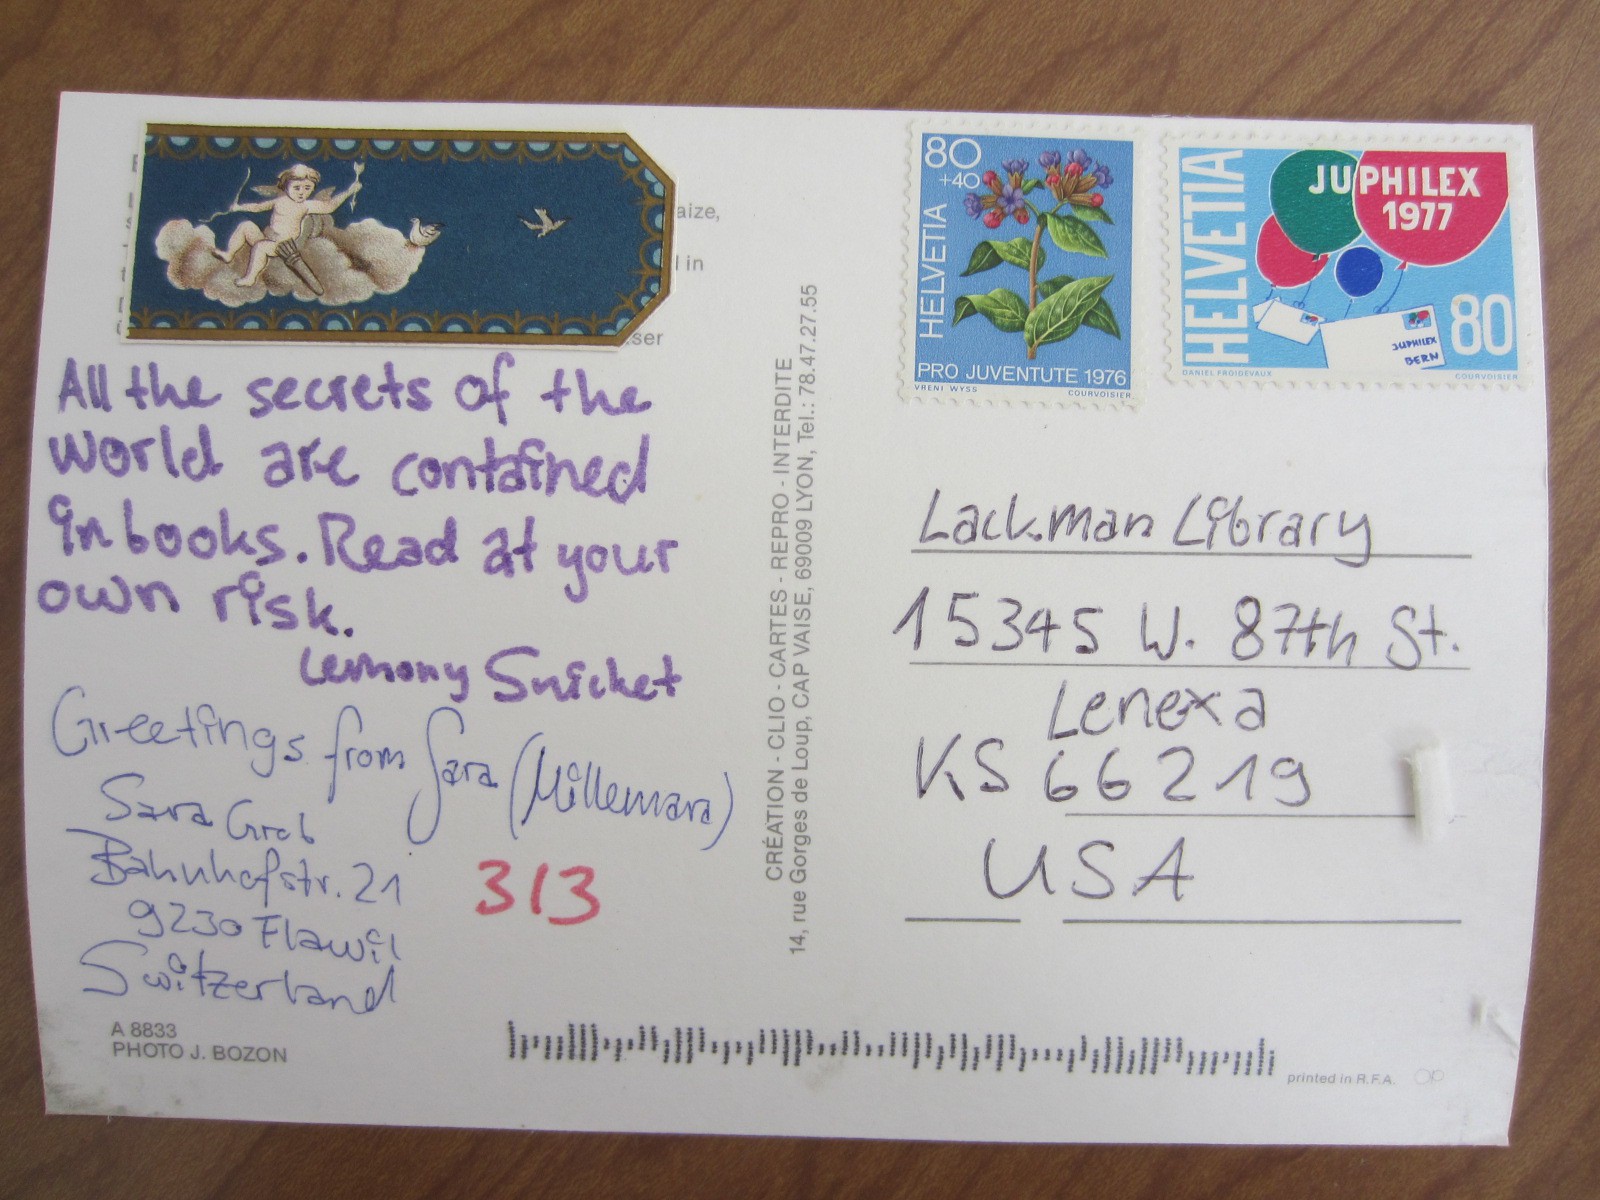 aize,
l in
ser
All the secrets of the
world are contained
in books. Read at your
own risk.
Lemony Snicket
Greetings from Sara (Millemara)
Sara Grob
Bahnhofstr. 21
9230 Flawil
Switzerland
313
A 8833
PHOTO J. BOZON
CRÉATION - CLIO - CARTES - REPRO - INTERDITE
14, rue Gorges de Loup, CAP VAISE, 69009 LYON, Tel.: 78.47.27.55
80
+40
HELVETIA
PRO JUVENTUTE 1976
VRENI WYSS
COURVOISIER
HELVETIA
JUPHILEX
1977
JUPHILEX
BERN
80
DANIEL FROIDEVAUX
COURVOISIER
Lackman Library
15345 W. 87th St.
Lenexa
KS 66219
USA
printed in R.F.A.